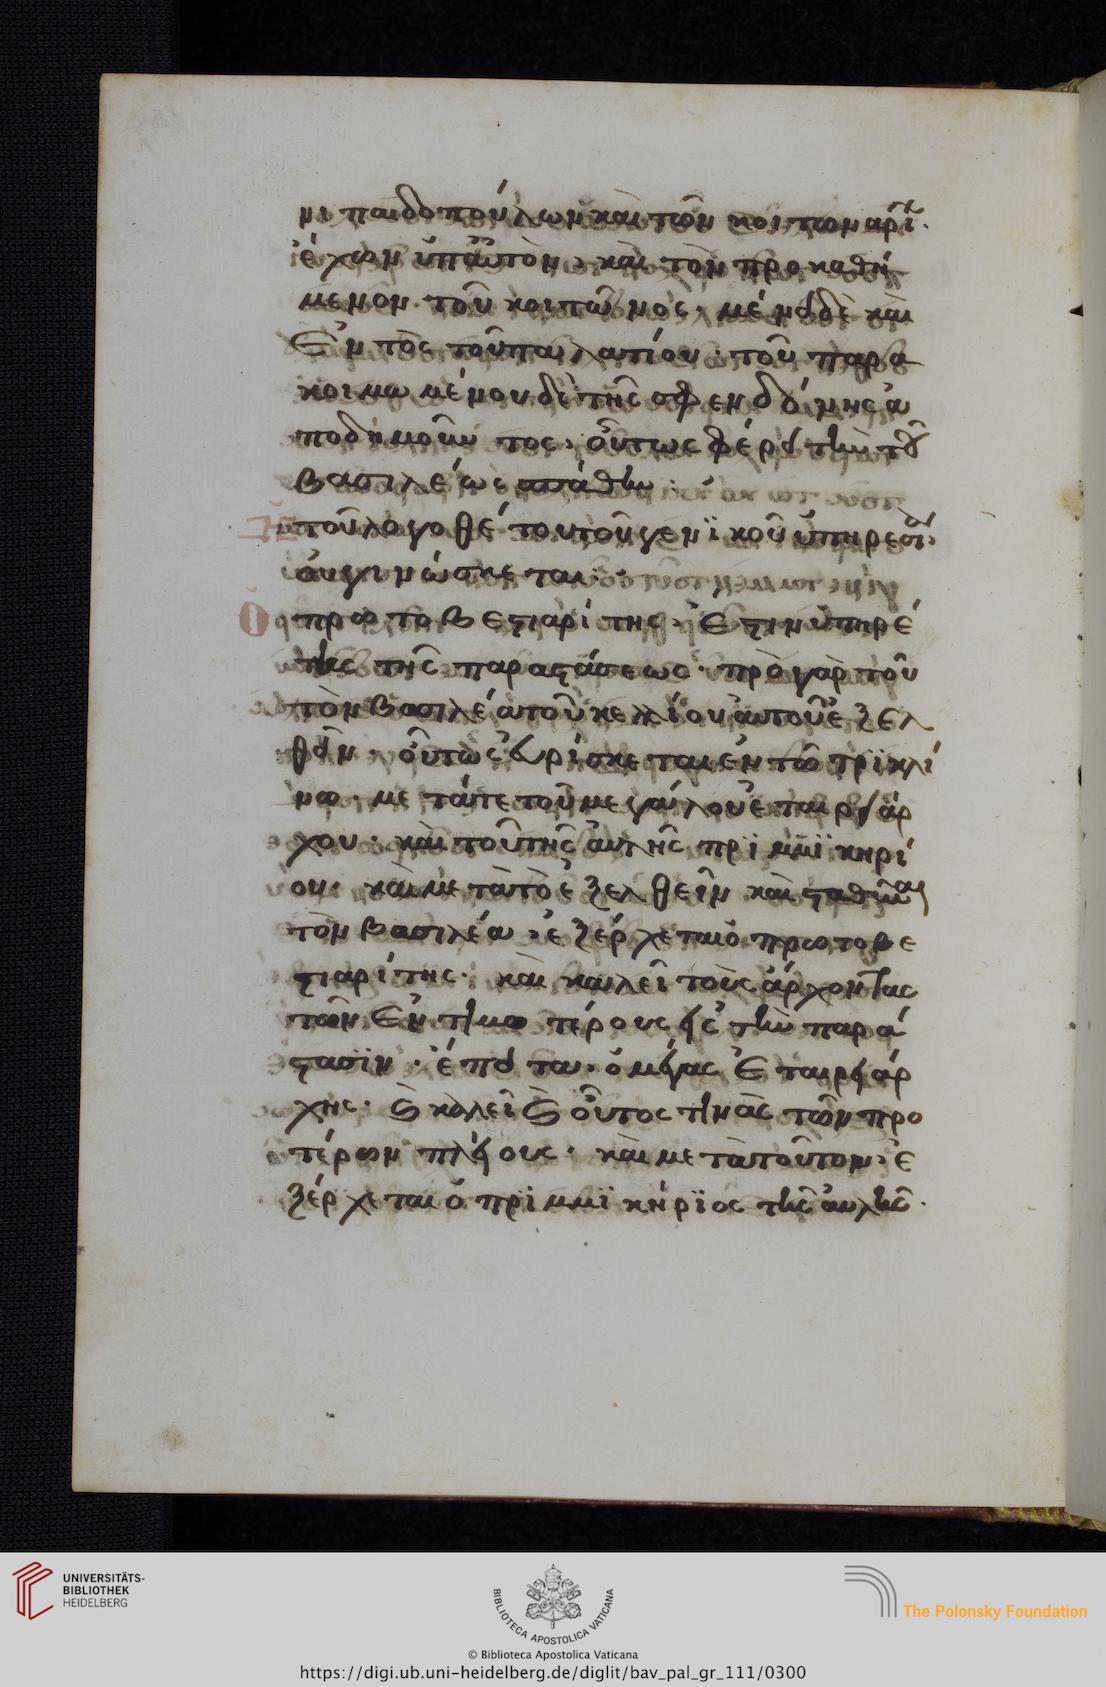 νι παιδοπούλων καὶ τῶν κοιτωναρί.
ἔχων ὑπ' αὐτὸν, καὶ τὸν προκαθή
μενον τοῦ κοιτῶνος. μένει δὲ καὶ
ἐντὸς τοῦ παλατίου. τοῦ παρα
κοιμωμένου δὲ τῆς σφενδόνης ἀ
ποδημοῦντος, οὗτος φέρει τὴν τοῦ
βασιλέως σπάθην
τοῦ λογοθέτου τοῦ γενικοῦ ὑπηρεσί.
οὐ γινώσκεται.
Ὁ πρωτοβεστιαρίτης. ἔστιν ὑπηρέ
της τῆς παραστάσεως. πρὸ γὰρ τοῦ
τὸν βασιλέα τοῦ κελλίου αὐτοῦ ἐξελ
θεῖν. οὗτος εὑρίσκεται ἐν τῷ τρικλί
νῳ. μετά τε τοῦ μεγάλου ἑταιρειάρ
χου. καὶ τοῦ τῆς αὐλῆς πριμμικηρί
ου. καὶ μετὰ τὸ ἐξελθεῖν καὶ σταθῆναι
τὸν βασιλέα, ἐξέρχεται ὁ πρωτοβε
στιαρίτης. καὶ καλεῖ τοὺς ἄρχοντας
τῶν ἐντιμωτέρους εἰς τὴν παρά
στασιν. ἕπεται. ὁ μέγας ἑταιρειάρ
χης. καὶ καλεῖ καὶ οὗτος τινὰς τῶν προ
τέρων πλείους. καὶ μετὰ τοῦτον, ἐ
ξέρχεται ὁ πριμμικήριος τῆς αὐλῆς.
UNIVERSITÄTS-
BIBLIOTHEK
HEIDELBERG
BIBLIOTECA APOSTOLICA VATICANA
The Polonsky Foundation
© Biblioteca Apostolica Vaticana
https://digi.ub.uni-heidelberg.de/diglit/bav_pal_gr_111/0300